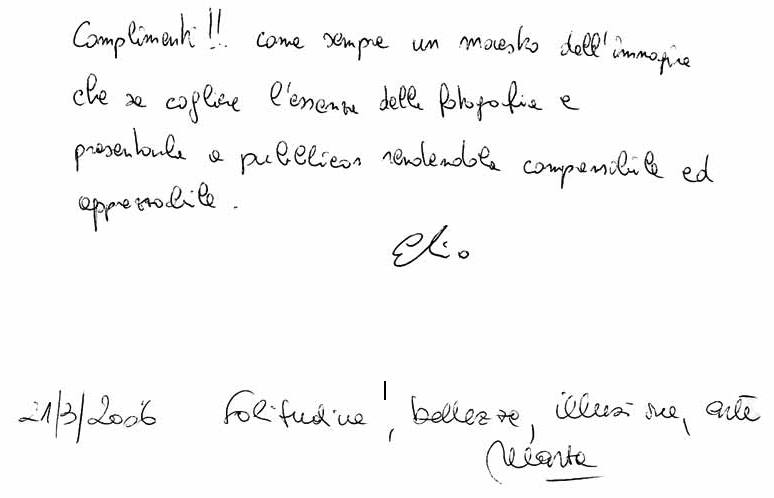 Complimenti!!! come sempre un maestro dell'immagine
che sa cogliere l'essenza della fotografia e
presentarla a pubblico rendendola compensibile ed
apprezzabile.
Elio
21/3/2006 Solitudine, bellezze, illusione, arte
Marta